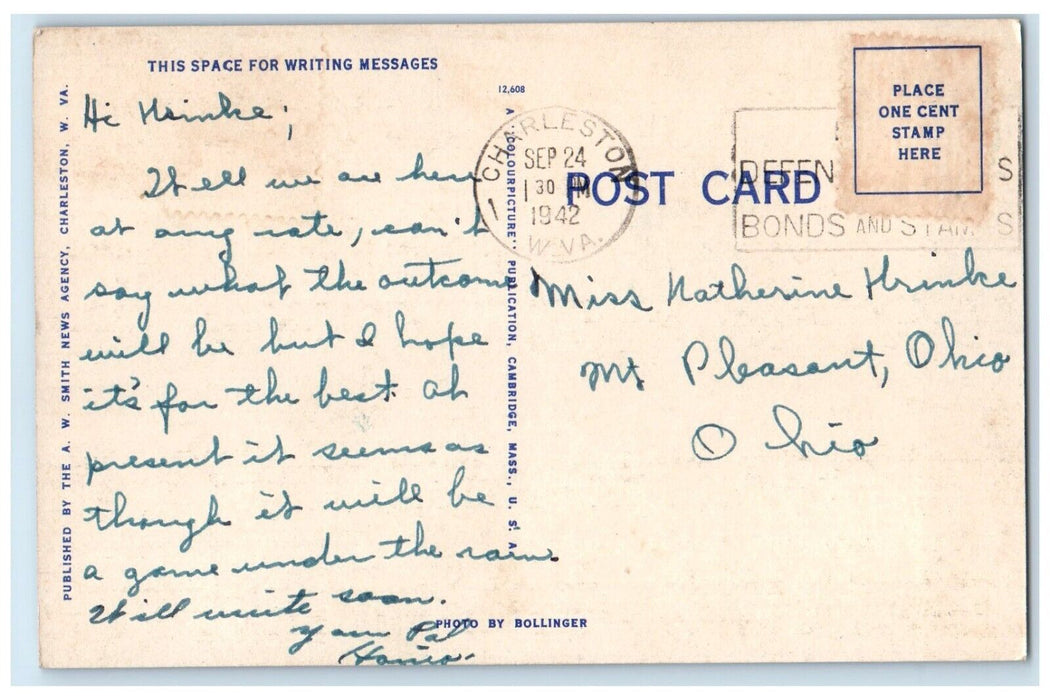 THIS SPACE FOR WRITING MESSAGES
PUBLISHED BY THE A. W. SMITH NEWS AGENCY, CHARLESTON, W. VA.
Hi Krinke;
Well we are here
at any rate, can't
say what the outcome
will be but I hope
it's for the best. At
present it seems as
though it will be
a game under the rain.
Will write soon.
Your Pal
12,608
A "COLOURPICTURE" PUBLICATION, CAMBRIDGE, MASS., U. S. A.
PHOTO BY BOLLINGER
CHARLESTON
SEP 24
1 30 PM
1942
W. VA.
1
POST CARD
DEFEN S
BONDS AND STAM S
PLACE
ONE CENT
STAMP
HERE
Miss Katherine Krinke
Mt Pleasant, Ohio
Ohio